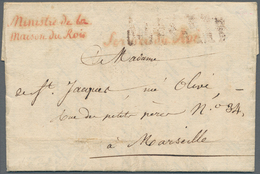 Ministre de la
Maison du Roi
Service du Roi
A Madame
de St. Jacques née Olive
rue des petits pères N.° 34,
à Marseille